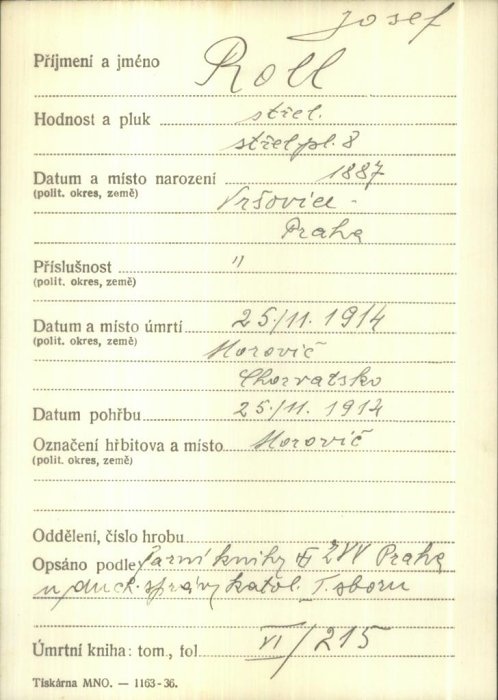 Josef
Příjmení a jméno Roll
Hodnost a pluk střel.
střel pl. 8
Datum a místo narození 1887
(polit. okres, země) Vršovice -
Praha
Příslušnost "
(polit. okres, země)
Datum a místo úmrtí 25./11. 1914
(polit. okres, země) Morovič
Chorvatsko
Datum pohřbu 25./11. 1914
Označení hřbitova a místo Morovič
(polit. okres, země)
Oddělení, číslo hrobu
Opsáno podle knihy ZVV Praha
duch. správy katol. I. sboru
Úmrtní kniha: tom., fol. VI/215
Tiskárna MNO. — 1163-36.